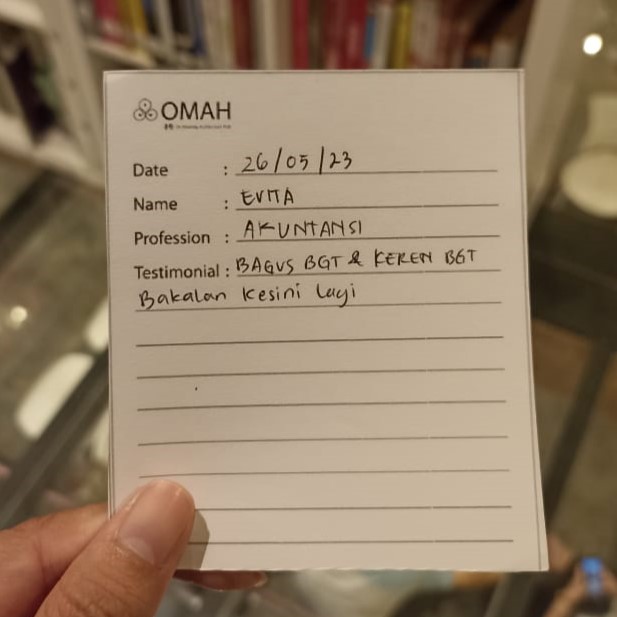 OMAH
Date : 26/05/23
Name : EVITA
Profession : AKUNTANSI
Testimonial : BAGUS BGT & KEREN BGT
Bakalan kesini lagi